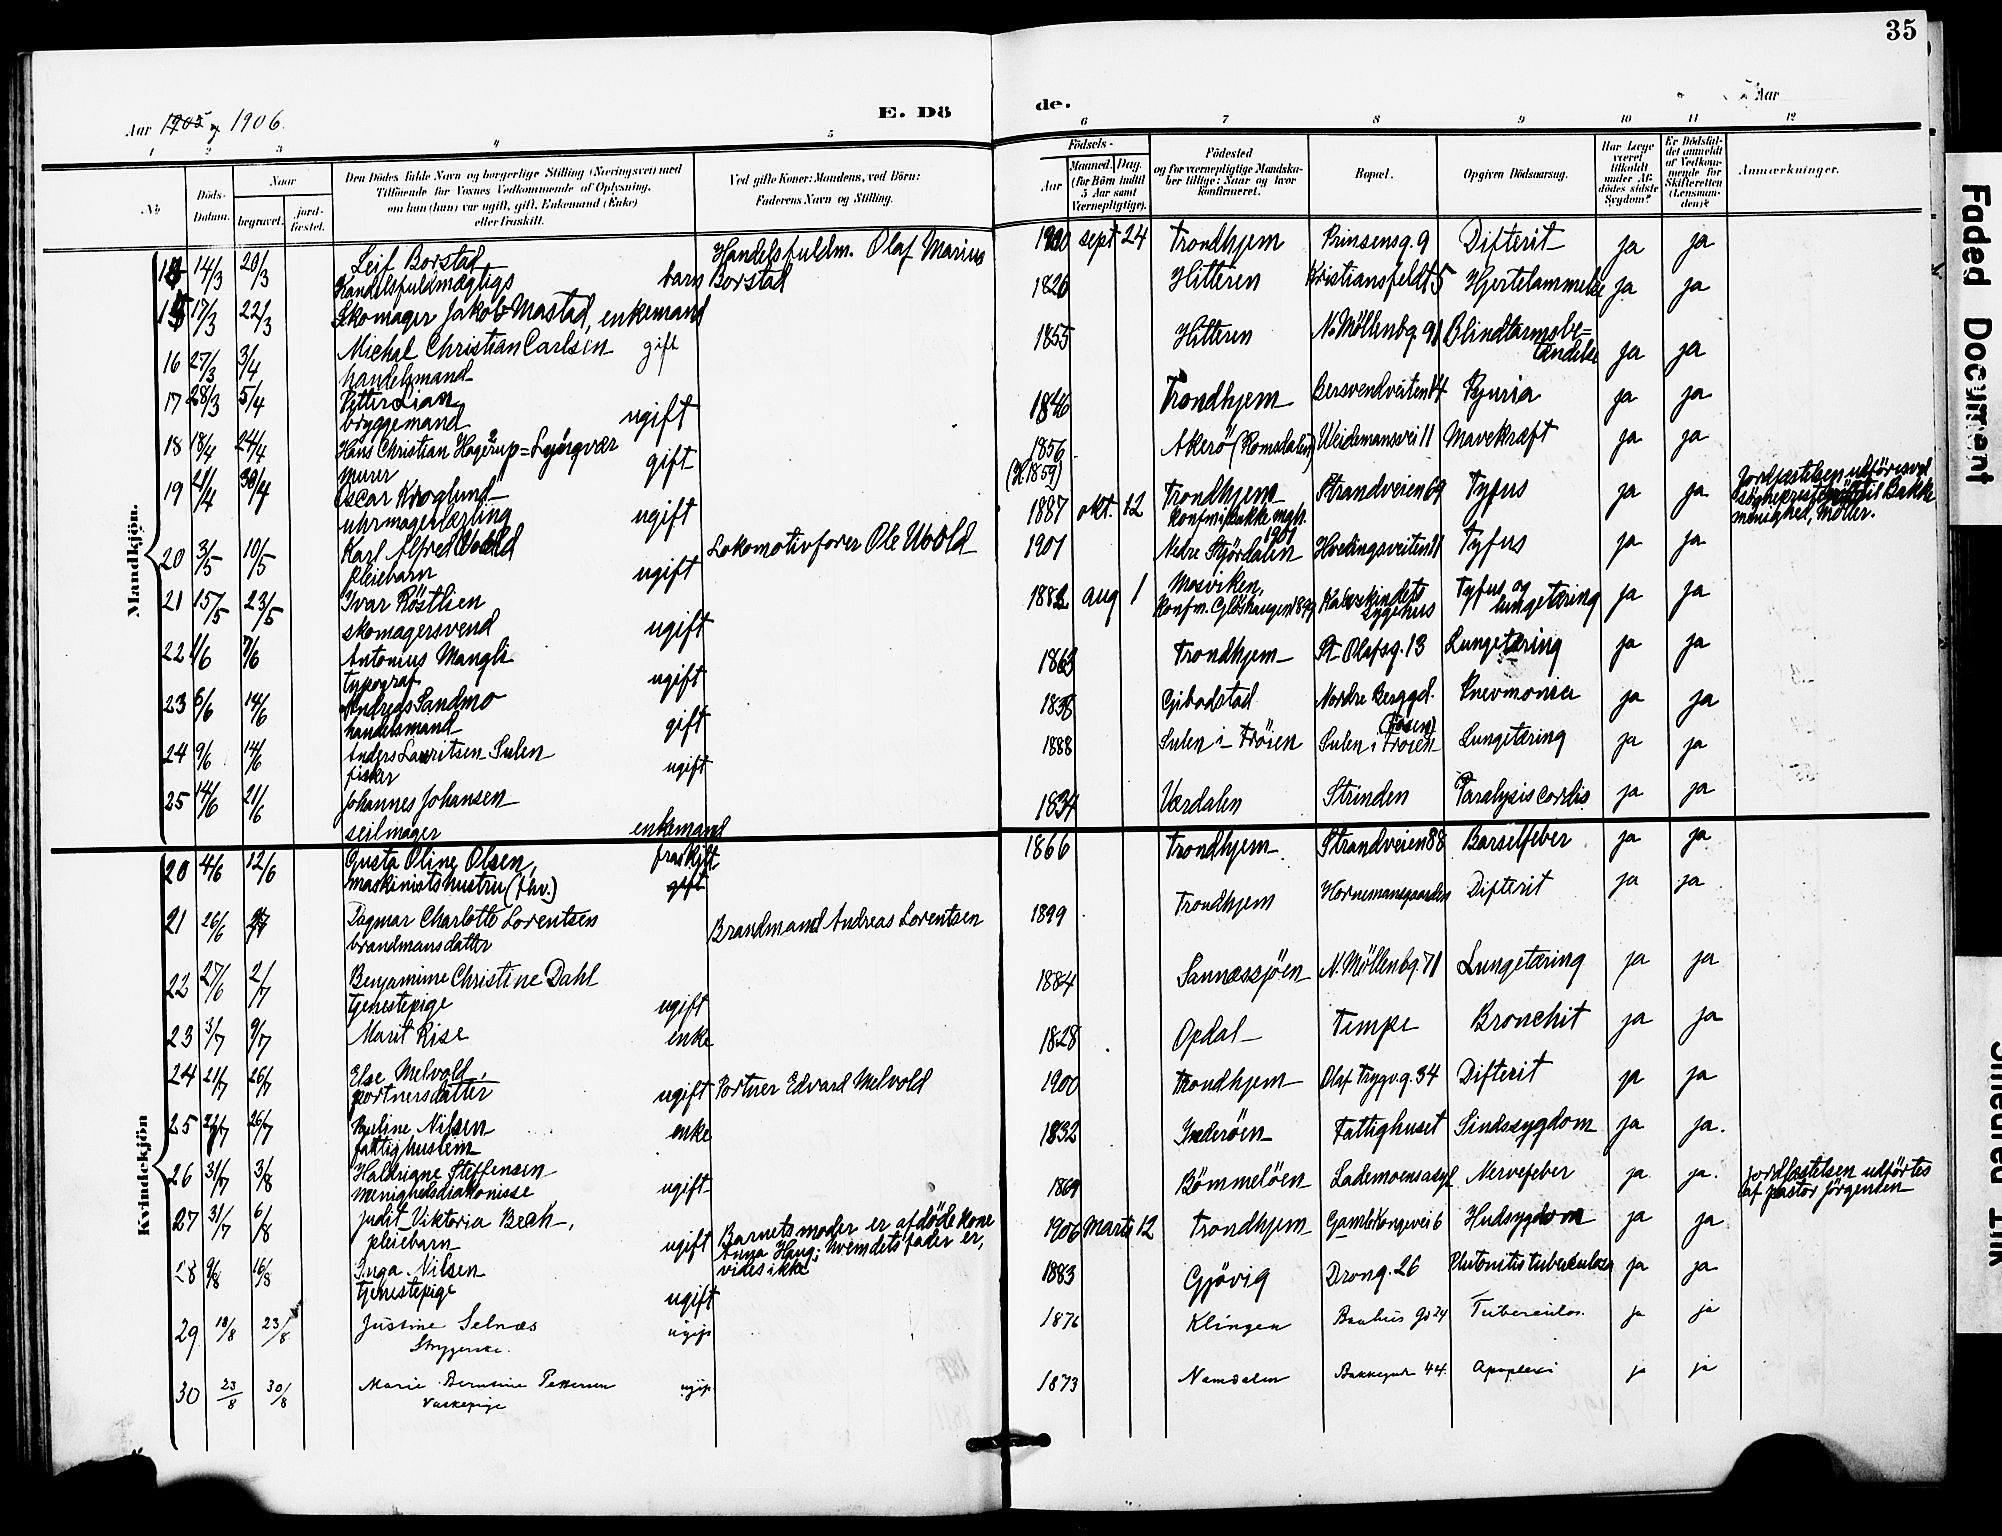 35
Aar 1905 og 1906.
E. Dö
de.
Aar
1 2 3 4 5 6 7 8 9 10 11 12
No
Döds-
Datum.
Naar
begravet.
jord-
fæstet.
Den Dödes fulde Navn og borgerlige Stilling (Næringsvei) med
Tilföiende for Voxnes Vedkommende af Oplysning,
om han (hun) var ugift, gift, Enkemand (Enke)
eller fraskilt.
Ved gifte Koner: Mandens, ved Börn:
Faderens Navn og Stilling.
Födsels-
Aar
Maaned. Dag.
(for Börn indtil
5 Aar samt
Værnepligtige).
Födested
og for værnepligtige Mandska-
ber tillige: Naar og hvor
konfirmeret.
Bopæl.
Opgiven Dödsaarsag.
Har Læge
været
tilkaldt
under Af-
dödes sidste
Sygdom?
Er Dödsfal-
det anmeldt
af Vedkom-
mende for
Skifteretten
(Lensman-
den)?
Anmærkninger.
Mandkjön.
14/3 20/3 Leif Borstad Handelsfuldm. Olaf Marius 1900 sept 24 Trondhjem Prinsensg. 9 Difterit ja ja
Handelsfuldmægtigs barn Borstad
15 17/3 22/3 Skomager Jakob Mastad, enkemand 1826 Hitteren Kristiansfeldt 5 Hjertelammelse ja ja
16 27/3 3/4 Michal Christian Carlsen gift 1855 Hitteren N. Möllenbg. 91 Blindtarmsbe=
tændelse ja ja
handelsmand
17 28/3 5/4 Petter Lian 1846 Trondhjem Bersvendveiten 14 Pyuria ja ja
bryggemand ugift
18 18/4 24/4 Hans Christian Hagerup=Lyörgvær 1856 Akerö (Romsdalen) Weidemansvei 11 Mavekræft ja ja
murer gift (K. 1859)
19 21/4 30/4 Oscar Kroglund 1887 okt. 12 Trondhjem Strandveien 69 Tyfus ja ja
Jordfæstelsen udföres ved
menighed, Möller.
uhrmagerlærling ugift Konfm. Bakke mgh. 1901
20 3/5 10/5 Karl Alfred Uvold Lokomotivförer Ole Uvold 1901 Nedre Stjördalen Hvedingsveiten 21 Tyfus ja ja
pleiebarn ugift
21 15/5 23/5 Ivar Röstlien 1882 aug 1 Mosviken, Kalvskindets Tyfus og ja ja
sygehus lungetæring
skomagersvend ugift
22 1/6 7/6 Antonius Mangli 1863 Trondhjem St Olafsg. 13 Lungetæring ja ja
typograf ugift
23 6/6 14/6 Andreas Sandmo 1835 Gibostad Nordre Berggd. Pnevmonia ja ja
handelsmand gift
24 9/6 14/6 Anders Lauritsen Sulen 1888 Sulen i Fröien Sulen i Fröien Lungetæring ja ja
fisker ugift
25 14/6 21/6 Johannes Johansen 1834 Værdalen Strinden Paralysis cordis ja ja
seilmager enkemand
Kvindekjön
20 4/6 12/6 Gusta Oline Olsen, fraskilt 1866 Trondhjem Strandveien 88 Barselfeber ja ja
maskinisthustru (fhv.) gift
21 26/6 2/7 Dagmar Charlotte Lorentsen Brandmand Andreas Lorentsen 1899 Trondhjem Hornemansgaarden Difterit ja ja
brandmansdatter
22 27/6 2/7 Benjamine Christine Dahl 1884 Sannæssjöen N. Möllenbg. 71 Lungetæring ja ja
tjenestepige ugift
23 3/7 9/7 Marit Rise enke 1828 Opdal Tempe Bronchit ja ja
24 21/7 26/7 Else Melvold, 1900 Trondhjem Olaf Trygv.g. 34 Difterit ja ja
portnersdatter ugift Portner Edvard Melvold
25 21/7 26/7 Pauline Nilsen enke 1832 Inderöen Fattighuset Sindssygdom ja ja.
fattighuslem
26 31/7 3/8 Haldrigne Steffensen 1869 Bömmelöen Lademoensasyl Nervefeber ja ja. Jordfæstelsen udförtes
menighedsdiakonisse ugift af pastor Jörgensen
27 31/7 6/8 Judit Viktoria Beck, Barnets moder er afdöde kone 1906 Marts 12 Trondhjem Gamlekongevei 6 Hudsygdom ja ja
pleiebarn ugift Anna Haug; hvem dets fader er,
vides ikke
28 9/8 16/8 Inga Nilsen 1883 Gjövig Drong. 26 ja ja
tjenestepige ugift
29 19/8 23/8 Justine Selnæs ugift 1876 Klingen Tuberculos. ja ja
Strygerske.
30 23/8 30/8 Marie Berntine Pettersen ugift 1873 Namdalen Bakkegd. 44 Apoplexi ja ja
Vaskepige
Faded Document